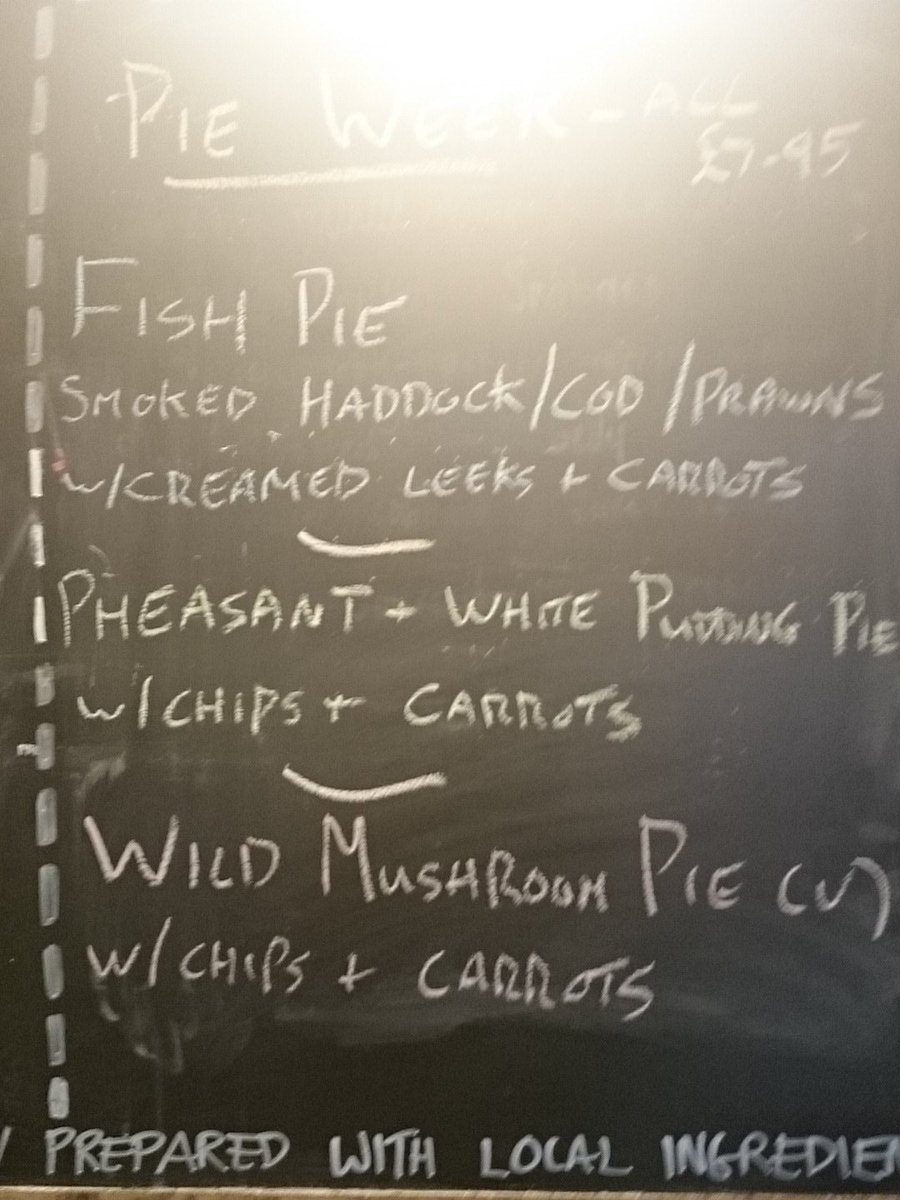 PIE WEEK - ALL
£7.95
FISH PIE
SMOKED HADDOCK/COD/PRAWNS
W/CREAMED LEEKS + CARROTS
PHEASANT + WHITE PUDDING PIE
W/CHIPS + CARROTS
WILD MUSHROOM PIE (V)
W/CHIPS + CARROTS
PREPARED WITH LOCAL